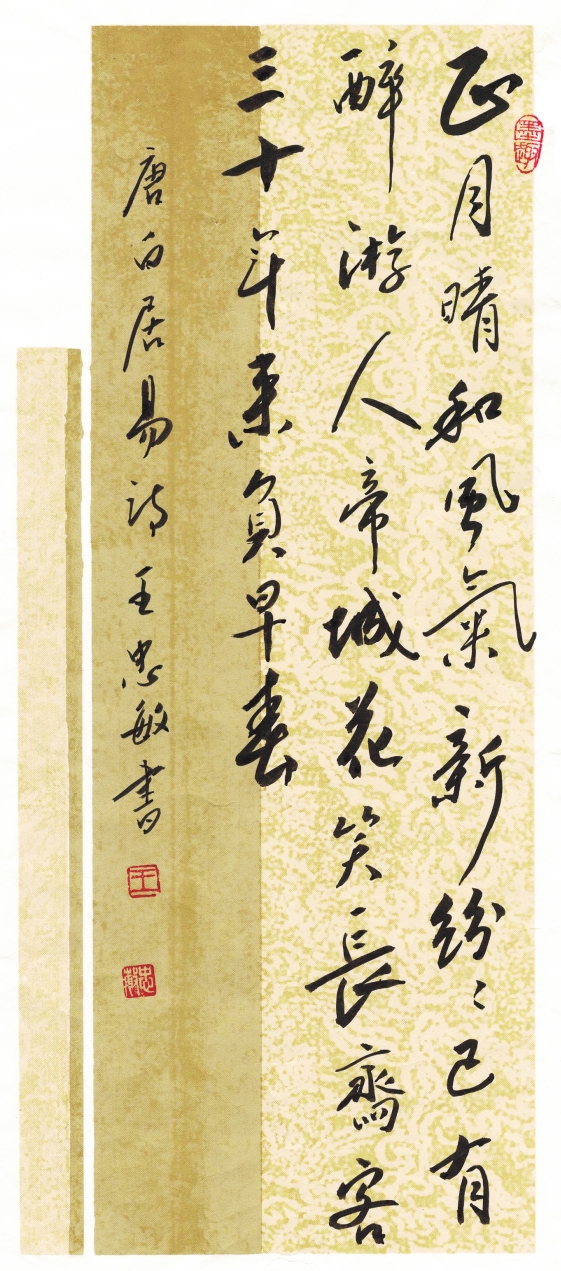 正月晴和風氣新紛〻已有
醉游人帝城花笑長齋客
三十年来負早春
唐白居易詩王忠敏書
王
忠敏